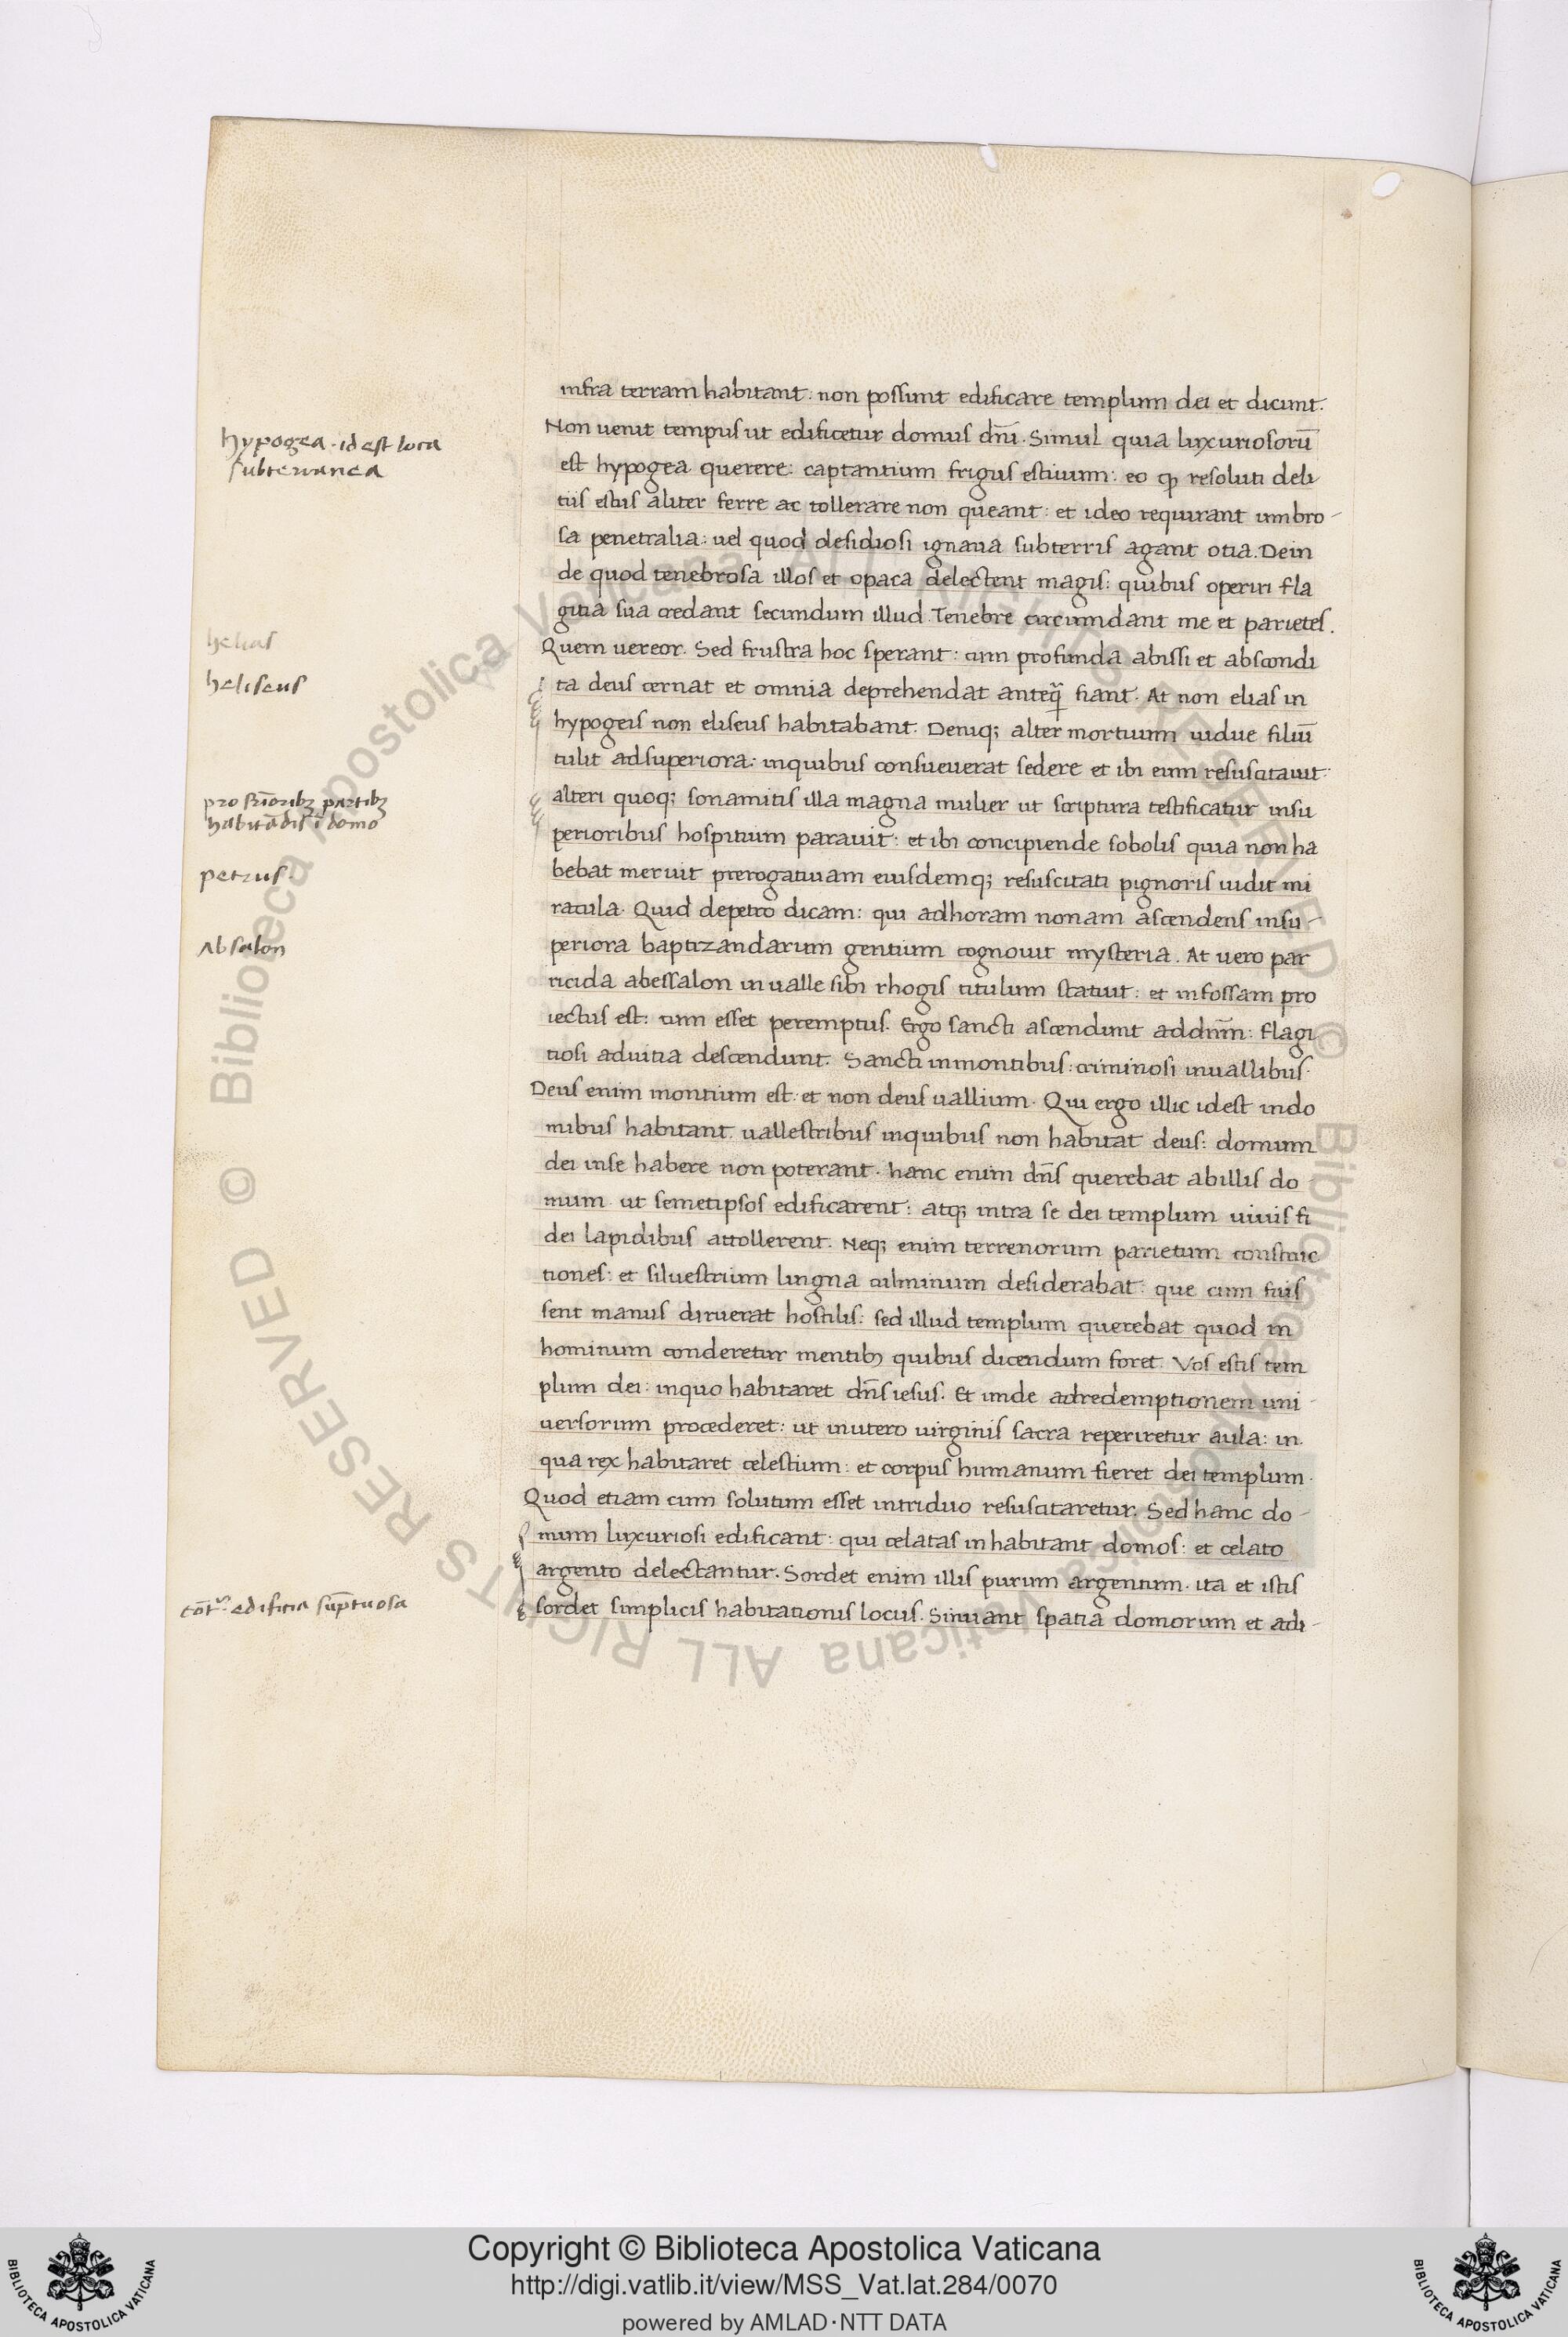 infra terram habitant: non possunt edificare templum dei et dicunt.
Non uenit tempus ut edificetur domus dñi. Simul quia luxuriosorū
est hypogea querere: captantium frigus estiuum: eo ꝙ resoluti deli
tiis estus aliter ferre ac tollerare non queant: et ideo requirant umbro-
sa penetralia: uel quod desidiosi ignaua subterris agant otia. Dein
de quod tenebrosa illos et opaca delectent magis: quibus operiri fla
gitia sua credant secundum illud. Tenebre circumdant me et parietes.
Quem uereor. Sed frustra hoc sperant: cum profunda abissi et abscondi
ta deus cernat et omnia deprehendat anteq̃ fiant. At non elias in
hypogeis non eliseus habitabant. Deniq; alter mortuum uidue filiū
tulit adsuperiora: inquibus consueuerat sedere et ibi eum resuscitauit:
alteri quoq; sonamitis illa magna mulier ut scriptura testificatur insu
perioribus hospitium parauit: et ibi concipiende sobolis quia non ha
bebat meruit prerogatiuam eiusdemq; resuscitati pignoris uidit mi
racula. Quid depetro dicam: qui adhoram nonam ascendens insu-
periora baptizandarum gentium cognouit mysteria. At uero par
ricida abessalon in ualle sibi rhogis titulum statuit: et infossam pro
iectus est: cum esset peremptus. Ergo sancti ascendunt addnm̃: flagi
tiosi aduitia descendunt. Sancti inmontibus: criminosi inuallibus.
Deus enim montium est: et non deus uallium. Qui ergo illic idest indo
mibus habitant uallestribus inquibus non habitat deus: domum
dei inse habere non poterant. hanc enim dñs querebat abillis do
mum ut semetipsos edificarent: atq; intra se dei templum uiuis fi
dei lapidibus attollerent. Neq; enim terrenorum parietum construc
tiones: et siluestrium lingna culminum desiderabat: que cum fuis
sent manus diruerat hostilis: sed illud templum querebat quod in
hominum conderetur mentibꝫ quibus dicendum foret. Vos estis tem
plum dei: inquo habitaret dñs iesus. Et unde adredemptionem uni-
uersorum procederet: ut inutero uirginis sacra reperiretur aula: in
qua rex habitaret celestium: et corpus humanum fieret dei templum.
Quod etiam cum solutum esset intriduo resuscitaretur. Sed hanc do-
mum luxuriosi edificant: qui celatas inhabitant domos: et celato
argento delectantur. Sordet enim illis purum argentum. ita et istis
sordet simplicis habitationis locus. Sinuant spatia domorum et adi-
hypogea. id est loca
subterranea
helias
heliseus
partibꝫ
habitādis ī domo
petrus.
Absalon
edificia sūptuosa
Copyright © Biblioteca Apostolica Vaticana
http://digi.vatlib.it/view/MSS_Vat.lat.284/0070
powered by AMLAD·NTT DATA
BIBLIOTECA APOSTOLICA VATICANA
BIBLIOTECA APOSTOLICA VATICANA
© Biblioteca Apostolica Vaticana ALL RIGHTS RESERVED © Biblioteca Apostolica Vaticana ALL RIGHTS RESERVED